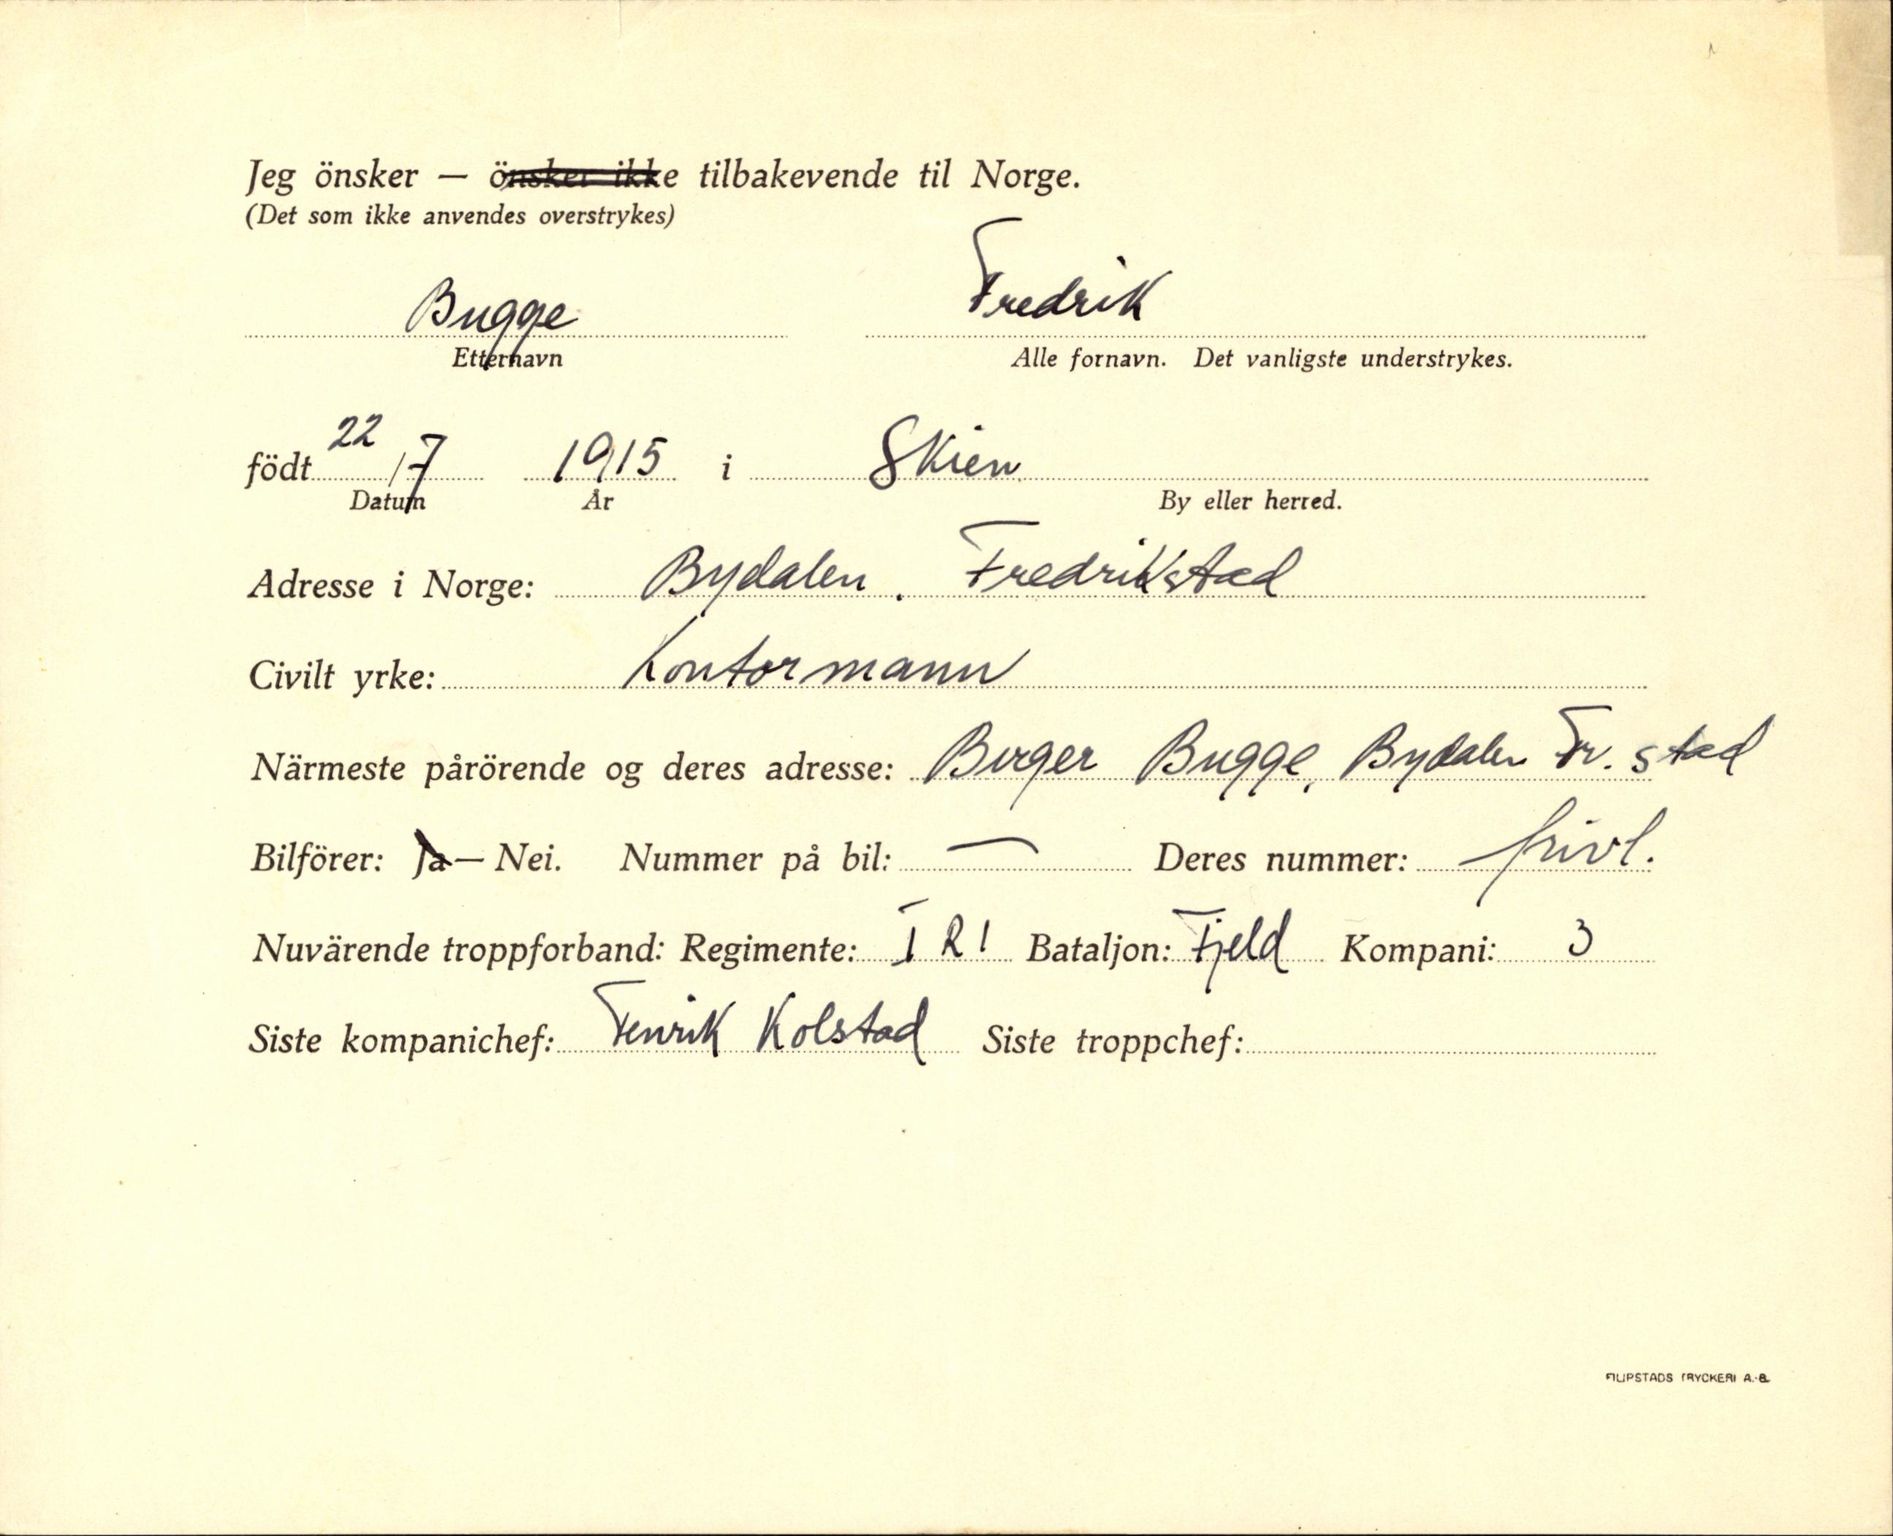 Jeg önsker — önsker ikke tilbakevende til Norge.
(Det som ikke anvendes overstrykes)
Bugge Fredrik
Etternavn Alle fornavn. Det vanligste understrykes.
födt 22/7 1915 i Skien
Datum År By eller herred.
Adresse i Norge: Bydalen. Fredrikstad
Civilt yrke: Kontormann
Närmeste pårörende og deres adresse: Birger Bugge, Bydalen Fr.stad
Bilförer: Ja — Nei. Nummer på bil: — Deres nummer: frivl.
Nuvärende troppforband: Regimente: I R 1 Bataljon: Fjeld Kompani: 3
Siste kompanichef: Fenrik Kolstad Siste troppchef:
FILIPSTADS TRYCKERI A.-B.